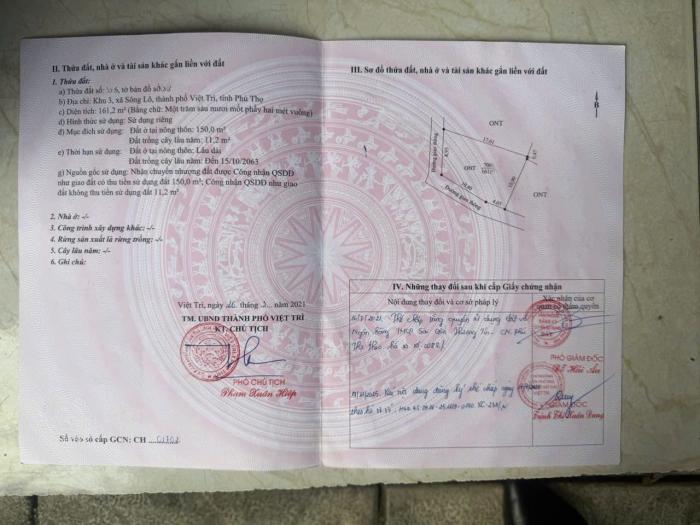 II. Thửa đất, nhà ở và tài sản khác gắn liền với đất
1. Thửa đất:
a) Thửa đất số: tờ bản đồ số:
b) Địa chỉ: Khu 3, xã Sông Lô, thành phố Việt Trì, tỉnh Phú Thọ
c) Diện tích: 161,2 m² (Bằng chữ: Một trăm sáu mươi mốt phẩy hai mét vuông)
d) Hình thức sử dụng: Sử dụng riêng
đ) Mục đích sử dụng: Đất ở tại nông thôn: 150,0 m²
Đất trồng cây lâu năm: 11,2 m²
e) Thời hạn sử dụng: Đất ở tại nông thôn: Lâu dài
Đất trồng cây lâu năm: Đến 15/10/2063
g) Nguồn gốc sử dụng: Nhận chuyển nhượng đất được Công nhận QSDĐ
như giao đất có thu tiền sử dụng đất 150,0 m²; Công nhận QSDĐ như giao
đất không thu tiền sử dụng đất 11,2 m²
2. Nhà ở: -/-
3. Công trình xây dựng khác: -/-
4. Rừng sản xuất là rừng trồng: -/-
5. Cây lâu năm: -/-
6. Ghi chú:
Việt Trì, ngày tháng 2 năm 2021
TM. UBND THÀNH PHỐ VIỆT TRÌ
KT. CHỦ TỊCH
PHÓ CHỦ TỊCH
Phạm Xuân Hiệp
Số vào sổ cấp GCN: CH
III. Sơ đồ thửa đất, nhà ở và tài sản khác gắn liền với đất
B
ONT
17.01
Đường giao thông
ONT
ONT
Đường giao thông
IV. Những thay đổi sau khi cấp Giấy chứng nhận
Nội dung thay đổi và cơ sở pháp lý
Xác nhận của cơ
quan có thẩm quyền
Thế chấp bằng quyền sử dụng đất
Ngân hàng TMCP Sài Gòn Thương Tín - CN Phú
Thọ theo hồ sơ số
PHÓ GIÁM ĐỐC
Đỗ Hải An
Xóa nội dung đăng ký thế chấp ngày
theo hồ sơ số
GIÁM ĐỐC
Trịnh Thị Xuân Dung